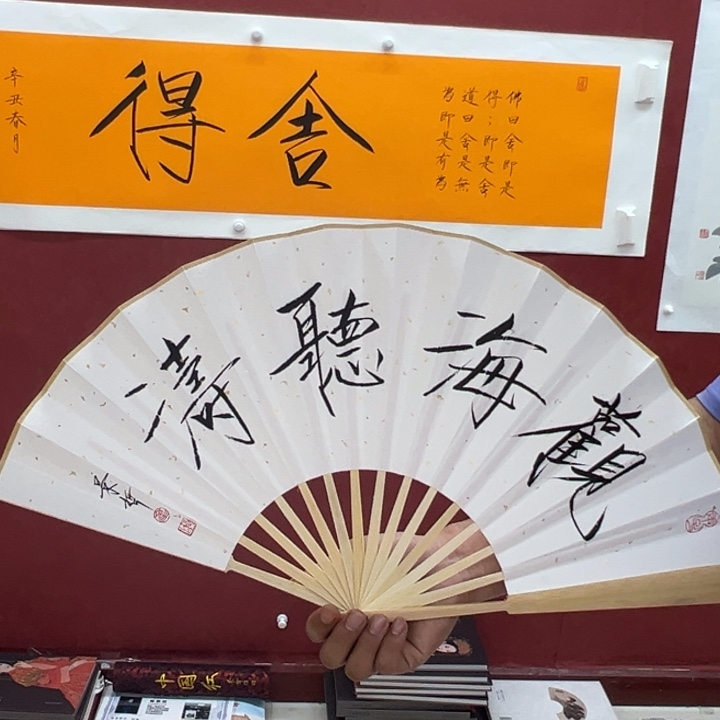 舍得
佛曰舍即是
得；即是舍
道曰舍是無
為即是有為
辛丑春月
觀海聽濤
中国红